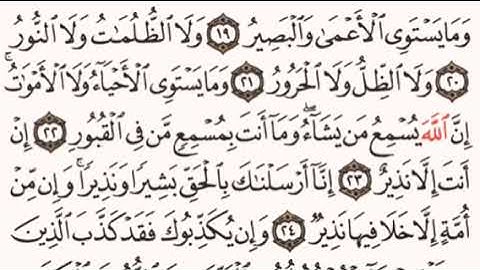 وَمَا يَسْتَوِى ٱلْأَعْمَىٰ وَٱلْبَصِيرُ ١٩ وَلَا ٱلظُّلُمَٰتُ وَلَا ٱلنُّورُ
٢٠ وَلَا ٱلظِّلُّ وَلَا ٱلْحَرُورُ ٢١ وَمَا يَسْتَوِى ٱلْأَحْيَآءُ وَلَا ٱلْأَمْوَٰتُ ۚ
إِنَّ ٱللَّهَ يُسْمِعُ مَن يَشَآءُ ۖ وَمَآ أَنتَ بِمُسْمِعٍ مَّن فِى ٱلْقُبُورِ ٢٢ إِنْ
أَنتَ إِلَّا نَذِيرٌ ٢٣ إِنَّآ أَرْسَلْنَٰكَ بِٱلْحَقِّ بَشِيرًا وَنَذِيرًا ۚ وَإِن مِّنْ
أُمَّةٍ إِلَّا خَلَا فِيهَا نَذِيرٌ ٢٤ وَإِن يُكَذِّبُوكَ فَقَدْ كَذَّبَ ٱلَّذِينَ